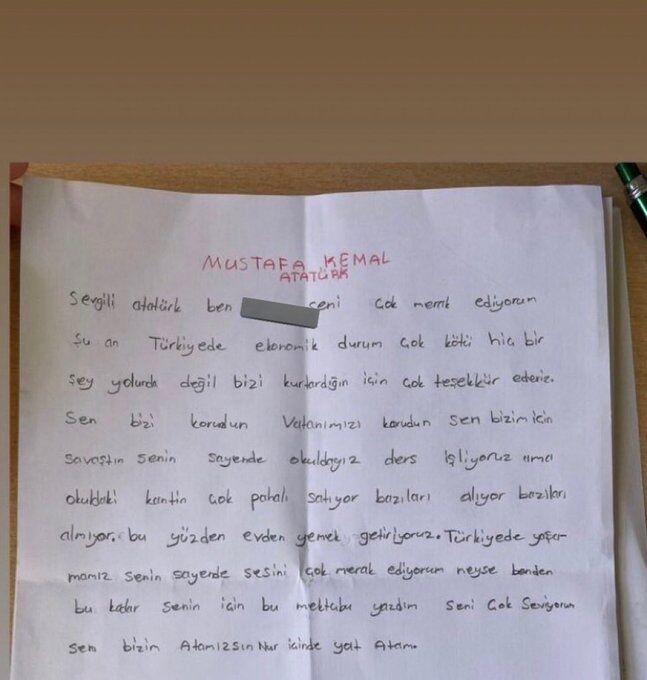 MUSTAFA KEMAL
ATATÜRK
Sevgili atatürk ben seni çok merak ediyorum
Şu an Türkiyede ekonomik durum çok kötü hiç bir
şey yolunda değil bizi kurtardığın için çok teşekkür ederiz.
Sen bizi korudun Vatanımızı korudun sen bizim için
savaştın senin sayende okuldayız ders işliyoruz ama
okuldaki kantin çok pahalı satıyor bazıları alıyor bazıları
almıyor. bu yüzden evden yemek getiriyoruz. Türkiyede yaşa-
mamız senin sayende sesini çok merak ediyorum neyse benden
bu kadar senin için bu mektubu yazdım Seni Çok Seviyorum
sen bizim Atamızsın Nur içinde yat Atam.